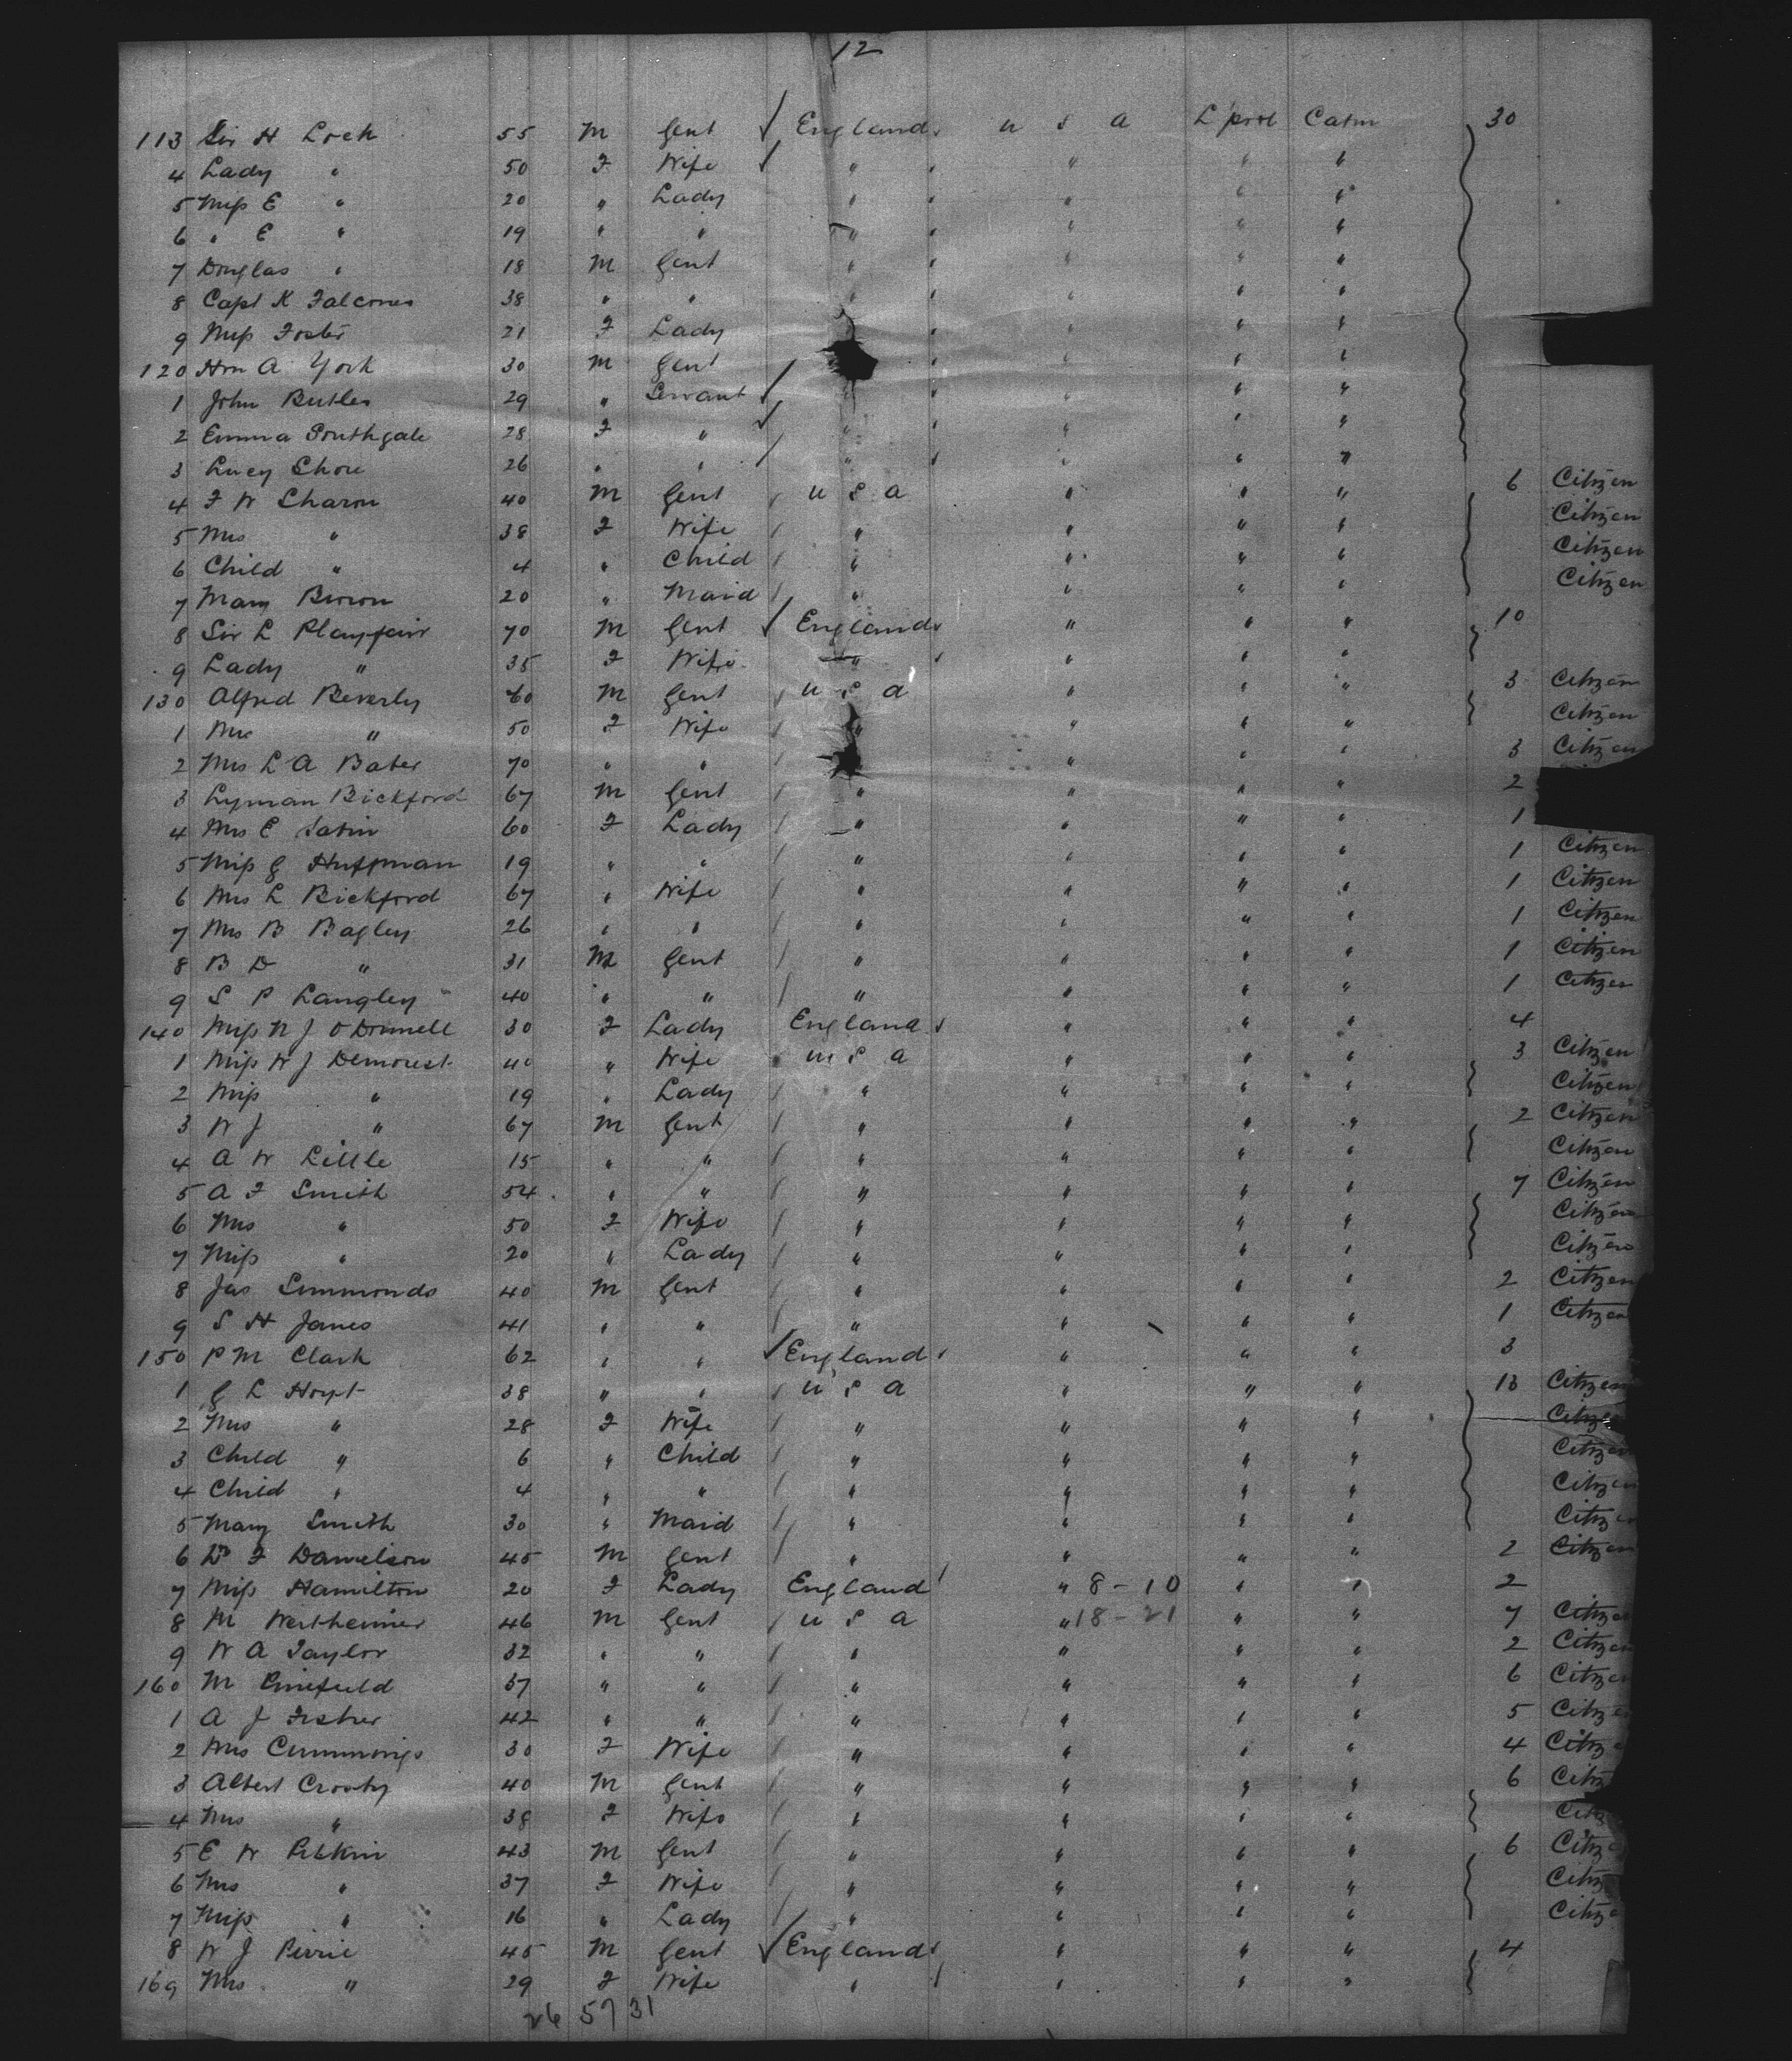 12
113 Sir H Loch 55 M Gent ✓ England U S A L'pool Cabin 30
4 Lady " 50 F Wife ✓ " " " "
5 Miss E " 20 " Lady " " " "
6 " E " 19 " " " " " "
7 Douglas " 18 M Gent " " " "
8 Capt K Falconer 38 " " " " " "
9 Miss Foster 21 F Lady " " " "
120 Hon A York 30 M Gent " " "
1 John Butler 29 " Servant ✓ " " " "
2 Emma Southgate 28 F " ✓ " " " "
3 Lucy Shore 26 " " " " " "
4 F W Sharon 40 M Gent U S A " " " 6 Citizen
5 Mrs " 38 F Wife " " " " Citizen
6 Child " 4 " Child " " " " Citizen
7 Mary Brown 20 " Maid " " " " Citizen
8 Sir L Playfair 70 M Gent ✓ England " " " 10
9 Lady " 35 F Wife " " " "
130 Alfred Beverly 60 M Gent U S A " " " 3 Citizen
1 Mrs " 50 F Wife " " " " Citizen
2 Mrs L A Bater 70 " " " " " " 3 Citizen
3 Lyman Bickford 67 M Gent " " " " 2
4 Mrs E 60 F Lady " " " " 1
5 Miss G Huffman 19 " " " " " " 1 Citizen
6 Mrs L Bickford 67 " Wife " " " " 1 Citizen
7 Mrs B Bagley 26 " " " " " " 1 Citizen
8 B D " 31 M Gent " " " " 1 Citizen
9 S P Langley 40 " " " " " " 1 Citizen
140 Miss N J O'Donnell 30 F Lady England " " " 4
1 Miss W J Demorest 40 " Wife U S A " " " 3 Citizen
2 Miss " 19 " Lady " " " " Citizen
3 W J " 67 M Gent " " " " 2 Citizen
4 A W Little 15 " " " " " " Citizen
5 A F Smith 54 " " " " " " 7 Citizen
6 Mrs " 50 F Wife " " " " Citizen
7 Miss " 20 " Lady " " " " Citizen
8 Jas Simmonds 40 M Gent " " " " 2 Citizen
9 S H Janes 41 " " " " " " 1 Citizen
150 P M Clark 62 " " ✓ England " " " 3
1 G L Hoyt 38 " " U S A " " " 13 Citizen
2 Mrs " 28 F Wife " " " " Citizen
3 Child " 6 " Child " " " " Citizen
4 Child " 4 " " " " " " Citizen
5 Mary Smith 30 " Maid " " " " Citizen
6 Dr F Danielson 45 M Gent " " " " 2 Citizen
7 Miss Hamilton 20 F Lady England " 8-10 " " 2
8 M Wertheimer 46 M Gent U S A " 18-21 " " 7 Citizen
9 W A Taylor 32 " " " " " " 2 Citizen
160 M 37 " " " " " " 6 Citizen
1 A J Fisher 42 " " " " " " 5 Citizen
2 Mrs Cummings 30 F Wife " " " " 4 Citiz
3 Albert Crosby 40 M Gent " " " " 6 Citiz
4 Mrs " 38 F Wife " " " " Citiz
5 E W Pitkin 43 M Gent " " " " 6 Citiz
6 Mrs " 37 F Wife " " " " Citiz
7 Miss " 16 " Lady " " " " Citiz
8 W J Pirrie 45 M Gent ✓ England " " " 4
169 Mrs " 29 F Wife " " " "
26 57 31